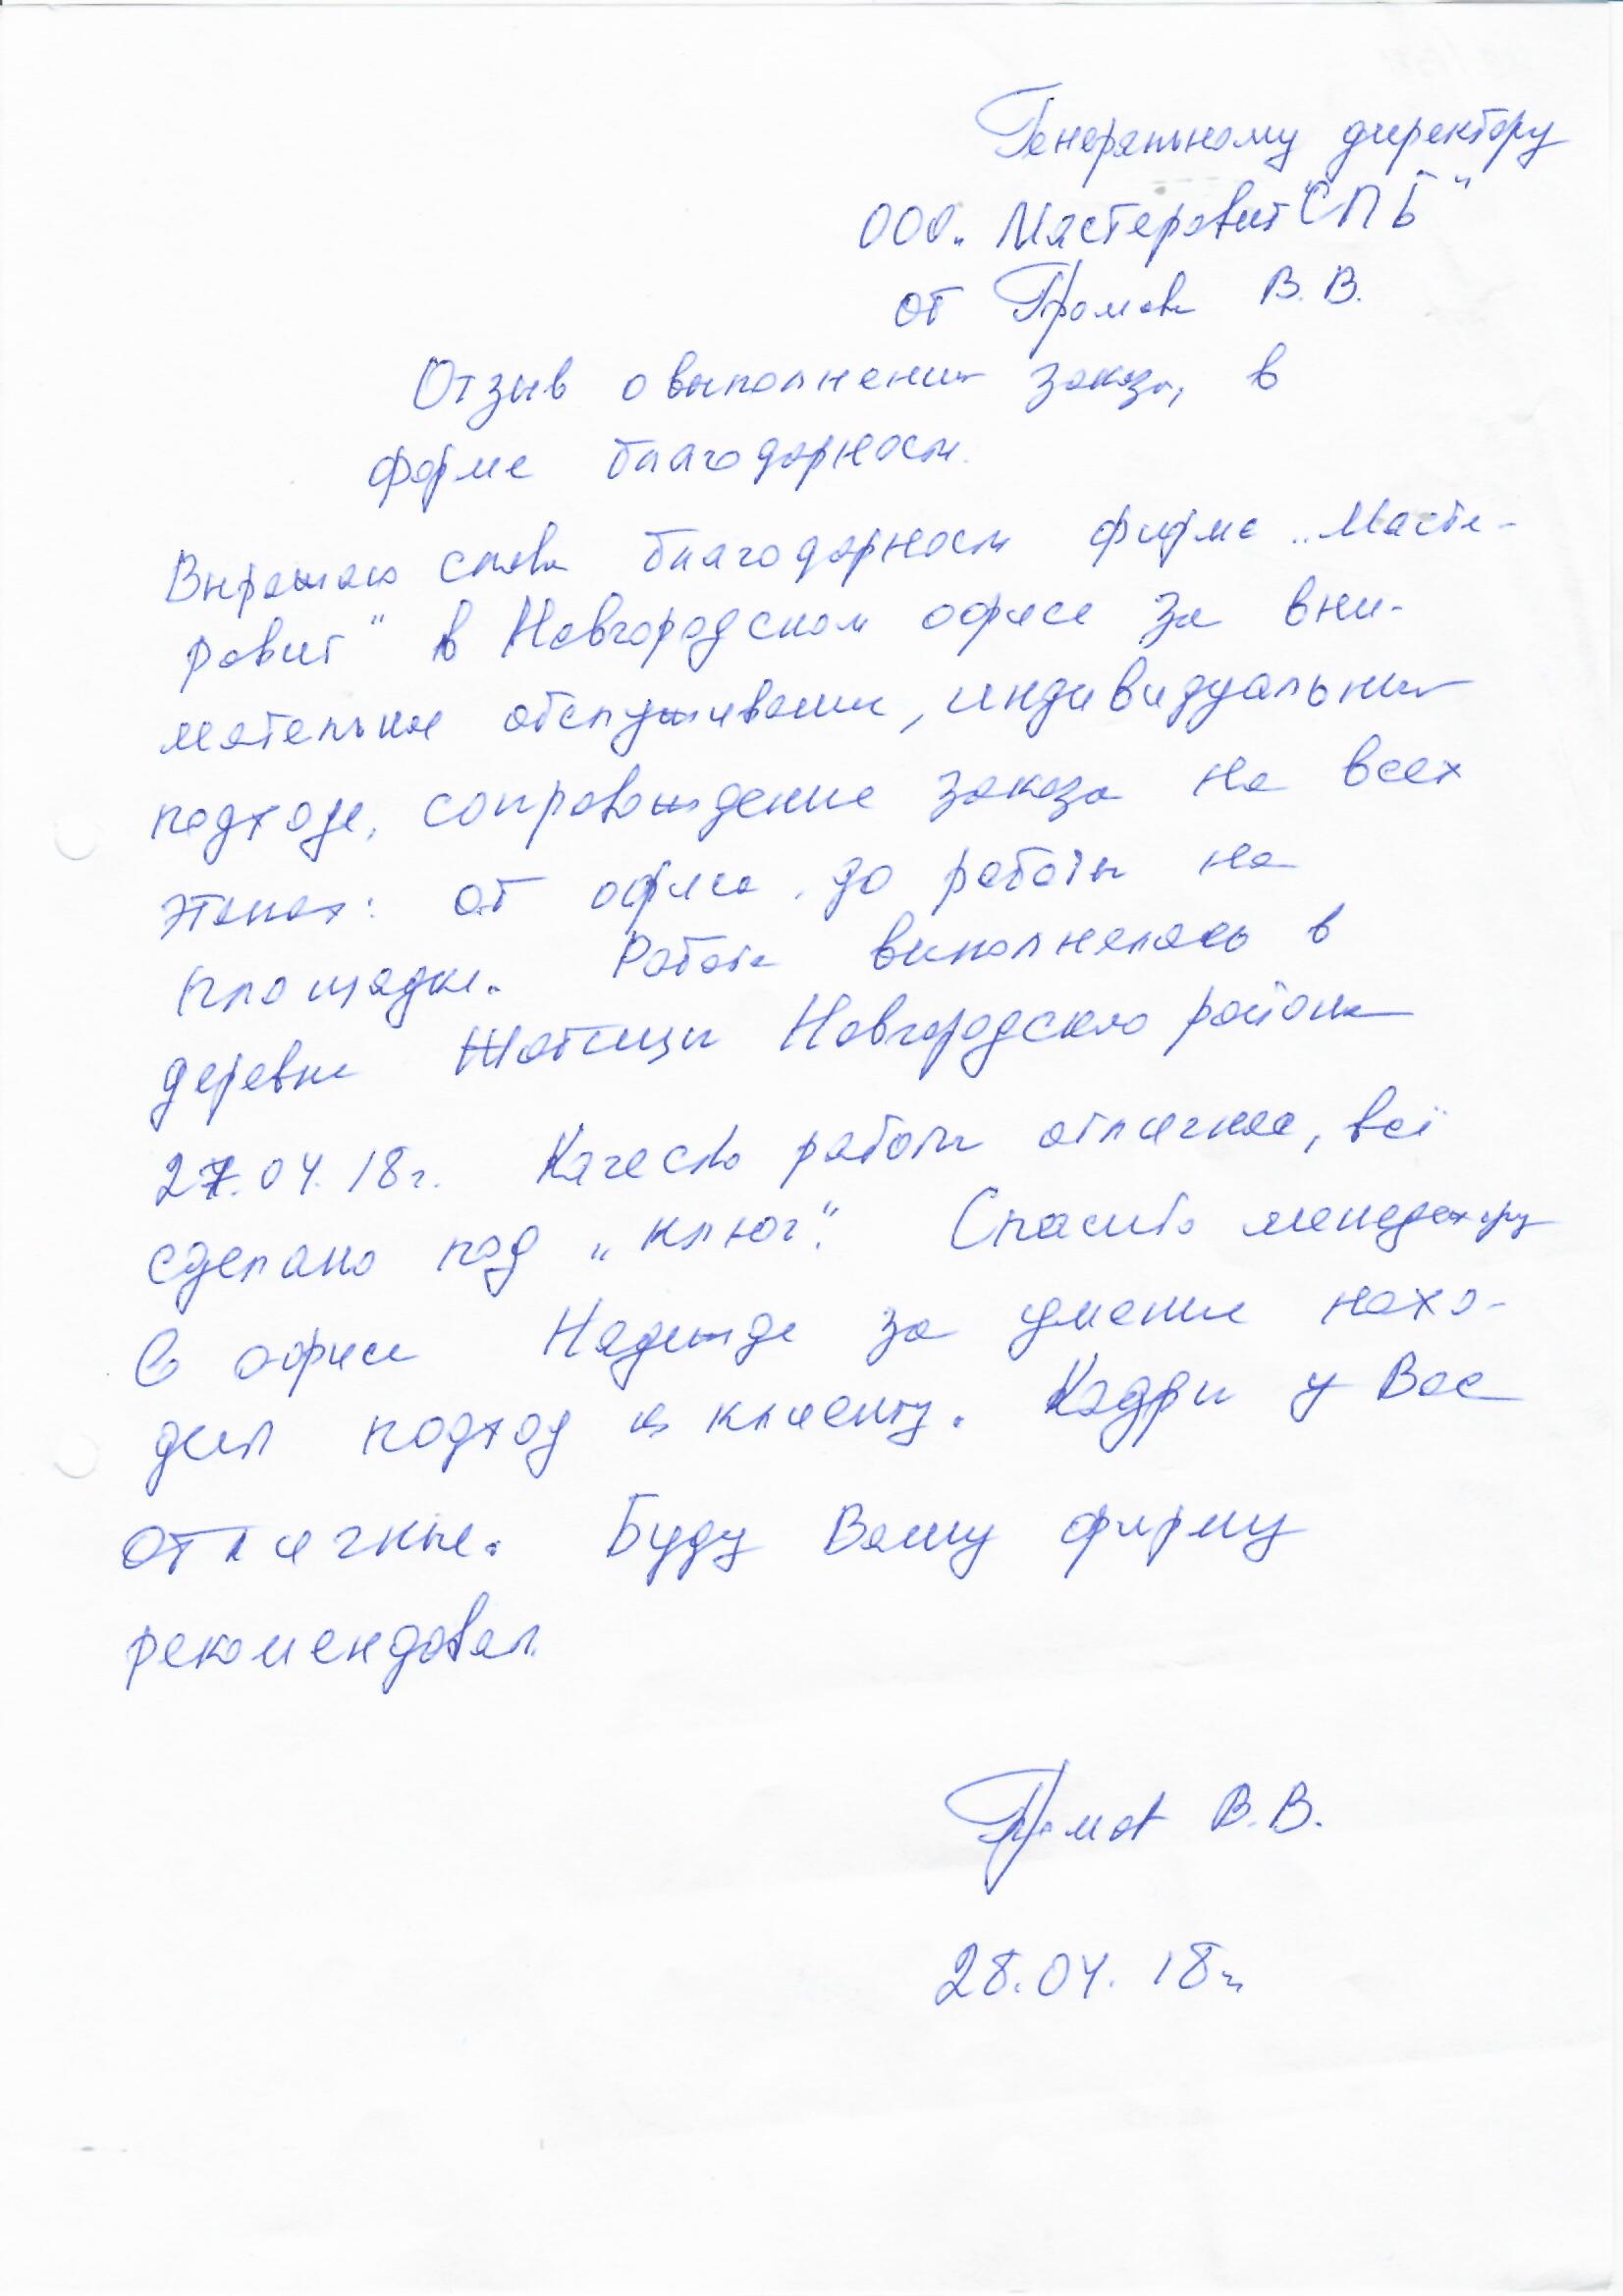 Генеральному директору
ООО „Мастеровит "СПБ"
от Громова В.В.
Отзыв о выполнении заказа, в
форме благодарности.
Выражаю слова благодарности фирме „Масте-
ровит" в Новгородском офисе за вни-
мательное обслуживание, индивидуальный
подход, сопровождение заказа на всех
этапах: от офиса до работы на
площадке. Работа выполнялась в
деревне Жотицы Новгородского района
27.04.18г. Качество работы отличное, всё
сделано под „ключ". Спасибо менеджеру
в офисе Надежде за умение нахо-
дил подход к клиенту. Кадры у Вас
отличные. Буду Вашу фирму
рекомендовал.
Громов В.В.
28.04.18г